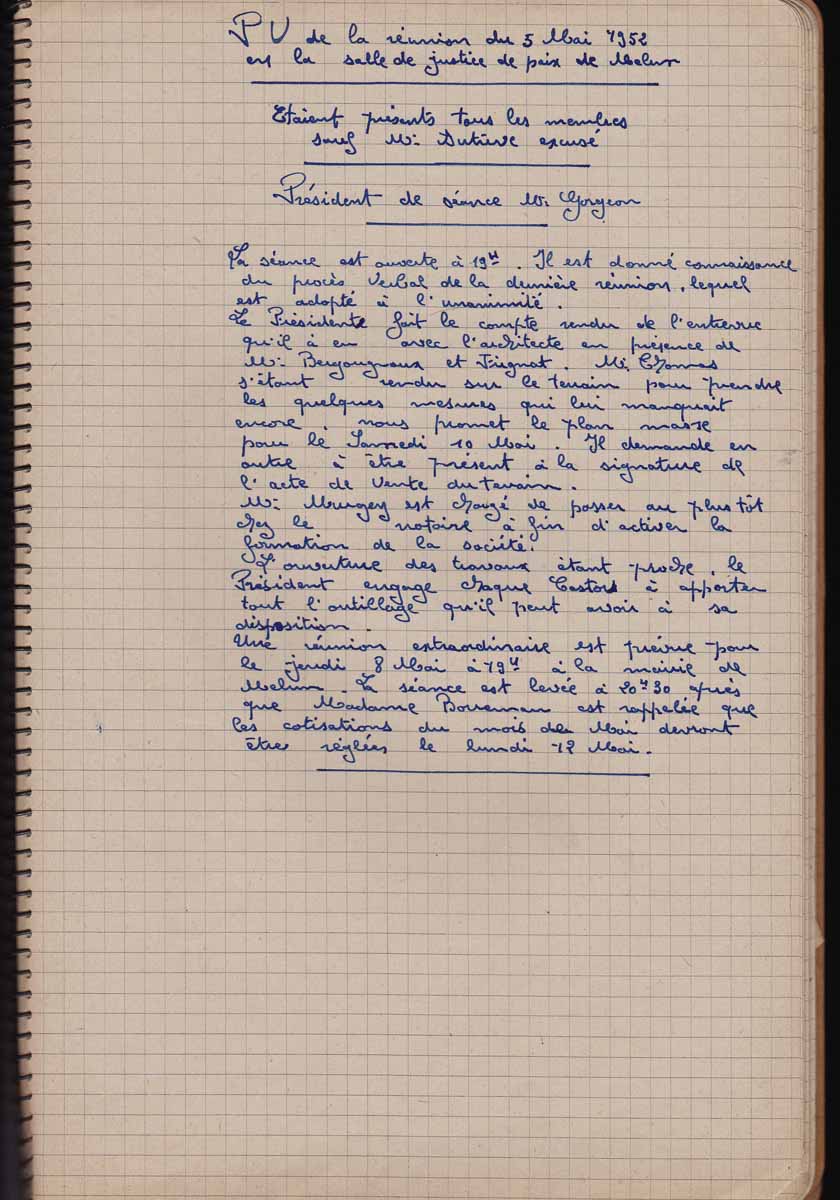 PV de la réunion du 5 Mai 1952
en la salle de justice de paix de Melun
Etaient présents tous les membres
sauf Mr: excusé
Président de séance Mr: Gorgeon
La séance est ouverte à 19H. Il est donné connaissance
du procès Verbal de la dernière réunion, lequel
est adopté à l'unanimité.
Le Présidente fait le compte rendu de l'entrevue
qu'il à eu avec l'architecte en présence de
Mr: Bergougnoux et Juignot. Mr: Thomas
s'étant rendu sur le terrain pour prendre
les quelques mesures qui lui manquait
encore, nous promet le plan masse
pour le Samedi 10 Mai. Il demande en
outre à être présent à la signature de
l'acte de vente du terrain.
Mr: Murgey est chargé de passer au plus tôt
chez le notaire à fin d'activer la
formation de la société.
L'ouverture des travaux étant proche, le
Président engage chaque Castors à apporter
tout l'outillage qu'il peut avoir à sa
disposition.
Une réunion extraordinaire est prévue pour
le jeudi 8 Mai à 19H à la mairie de
Melun. La séance est levée à 20H30 après
que Madame est rappelée que
les cotisations du mois de Mai devront
être réglées le lundi 12 Mai.